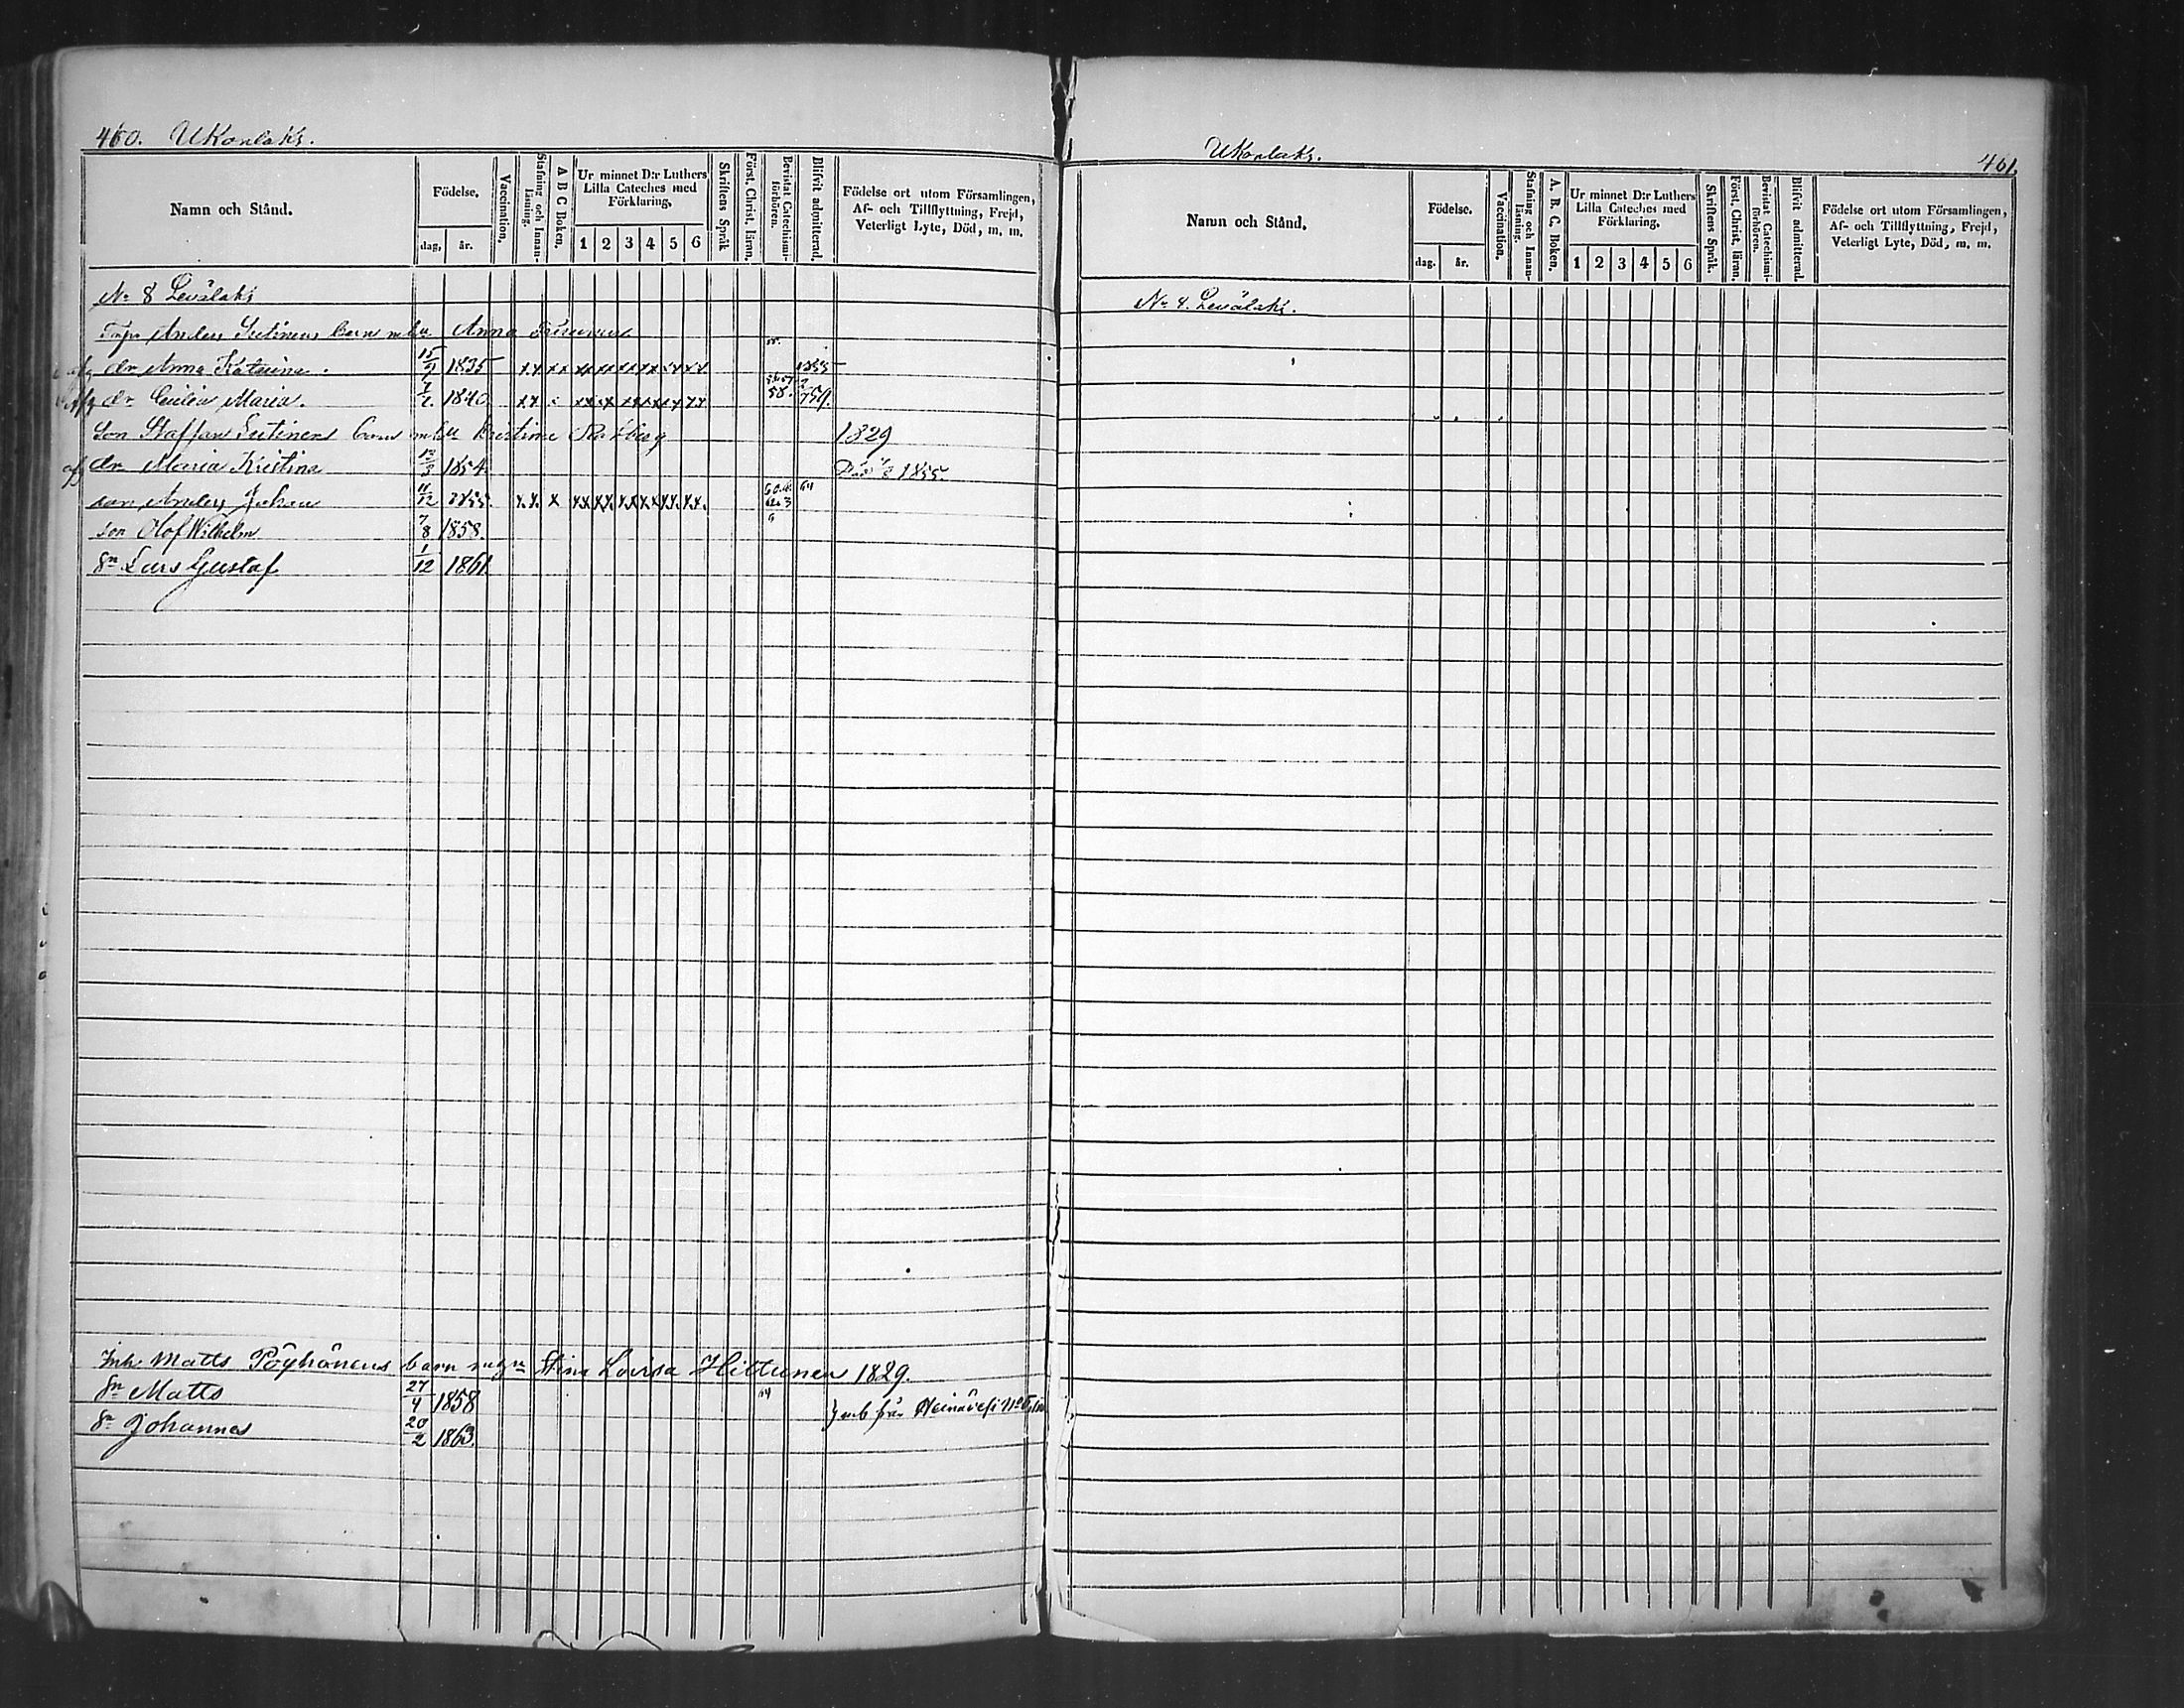 460. Ukonlaks.
Namn och Stånd.
Födelse.
dag. år.
Vaccination.
Stafning och Innan-läsning.
A B C Boken.
Ur minnet D:r Luthers Lilla Cateches med Förklaring.
1 2 3 4 5 6
Skriftens Språk
Först. Christ. läran.
Bevistat Catechismi-förhören.
Blifvit admitterad.
Födelse ort utom Församlingen, Af- och Tillflyttning, Frejd, Veterligt Lyte, Död, m. m.
No 8 Levälaks
Anders Sutinens barn Anna
dr Anna Katarina. 15/9 1835 xx xx xx xx xx xx xx xx 1855
dr Maria. 1840 58. 759.
Son Staffan Sutinens barn 1829
dr Maria Kristina 1854 Död 1855.
son Anders Johan 11/12 1855. x.x. x xx xx xx xx xx. xx. 64
son Olof Wilhelm 7/8 1858
Sn Lars Gustaf 1/12 1861
Inh. Matts Pöyhönens barn Stina Lovisa Hiltunen 1829.
Sn Matts 27/4 1858 64 från Heinävesi
Sn Johannes 20/2 1863.
Ukonlaks. 461.
Namn och Stånd.
Födelse.
dag. år.
Vaccination.
Stafning och Innan-läsning.
A. B. C. Boken.
Ur minnet D:r Luthers Lilla Cateches med Förklaring.
1 2 3 4 5 6
Skriftens Språk.
Först. Christ. läran.
Bevistat Catechismi-förhören.
Blifvit admitterad.
Födelse ort utom Församlingen, Af- och Tillflyttning, Frejd, Veterligt Lyte, Död, m. m.
No 4. Levälaks.